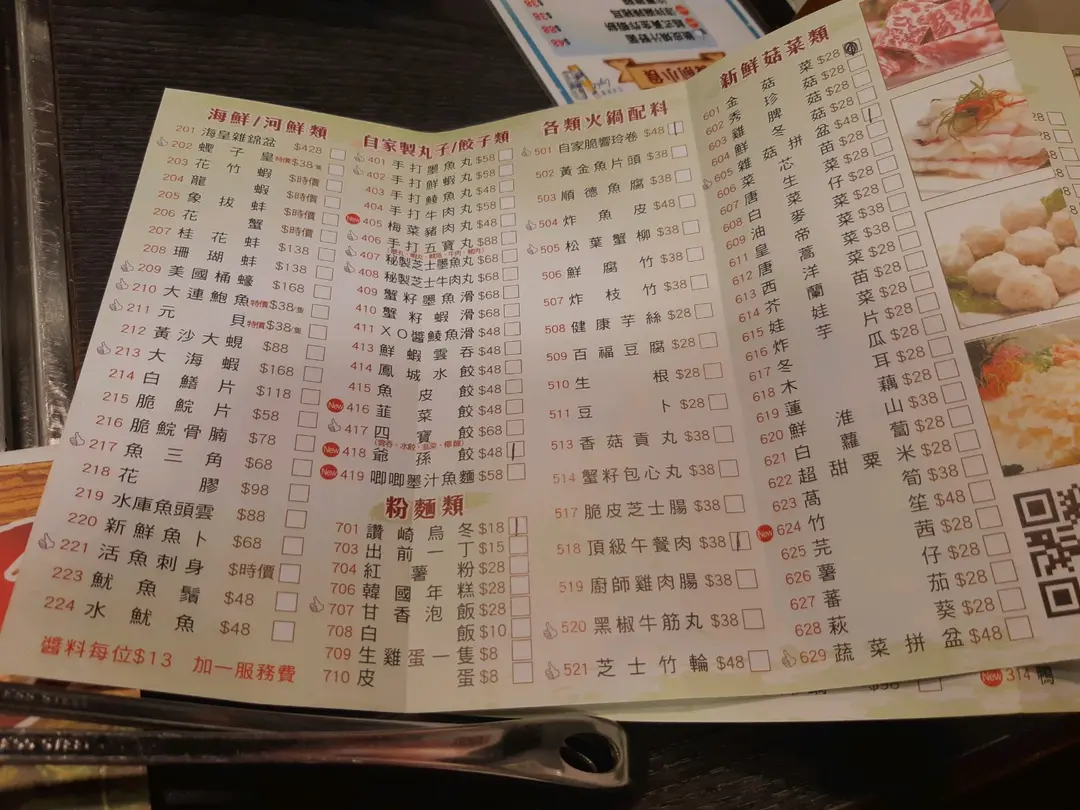 海鮮/河鮮類
201 海皇雜錦盆 $428
202 蟶子皇 特價$38隻
203 花竹蝦 $時價
204 龍蝦 $時價
205 象拔蚌 $時價
206 花蟹 $時價
207 桂花蚌 $138
208 珊瑚蚌 $138
209 美國桶蠔 $168
210 大連鮑魚 特價$38隻
211 元貝 特價$38隻
212 黃沙大蜆 $88
213 大海蝦 $168
214 白鱔片 $118
215 脆鯇片 $58
216 脆鯇骨腩 $78
217 魚三角 $68
218 花膠 $98
219 水庫魚頭雲 $88
220 新鮮魚卜 $68
221 活魚刺身 $時價
223 魷魚鬚 $48
224 水魷魚 $48
醬料每位$13 加一服務費
自家製丸子/餃子類
401 手打墨魚丸 $58
402 手打鮮蝦丸 $58
403 手打鯪魚丸 $48
404 手打牛肉丸 $48
New 405 梅菜豬肉丸 $48
406 手打五寶丸 $88
407 秘製芝士墨魚丸 $68
408 秘製芝士牛肉丸 $68
409 蟹籽墨魚滑 $68
410 蟹籽蝦滑 $68
411 XO醬鯪魚滑 $48
413 鮮蝦雲吞 $48
414 鳳城水餃 $48
415 魚皮餃 $48
New 416 韮菜餃 $48
417 四寶餃 $68
New 418 爺孫餃 $48
New 419 唧唧墨汁魚麵 $58
粉麵類
701 讚崎烏冬 $18
703 出前一丁 $15
704 紅薯粉 $28
706 韓國年糕 $28
707 甘香泡飯 $28
708 白飯 $10
709 生雞蛋一隻 $8
710 皮蛋 $8
各類火鍋配料
501 自家脆響玲卷 $48
502 黃金魚片頭 $38
503 順德魚腐 $38
504 炸魚皮 $48
505 松葉蟹柳 $38
506 鮮腐竹 $38
507 炸枝竹 $38
508 健康芋絲 $28
509 百福豆腐 $28
510 生根 $28
511 豆卜 $28
513 香菇貢丸 $38
514 蟹籽包心丸 $38
517 脆皮芝士腸 $38
518 頂級午餐肉 $38
519 廚師雞肉腸 $38
520 黑椒牛筋丸 $38
521 芝士竹輪 $48
新鮮菇菜類
601 金菇 $28
602 秀珍菇 $28
603 雞脾菇 $28
604 鮮冬菇 $28
605 雜菇拼盆 $48
606 菜芯苗 $28
607 唐生菜 $28
608 白菜仔 $28
609 油麥菜 $28
611 皇帝菜 $38
612 唐蒿 $38
613 西洋菜 $28
614 芥蘭苗 $28
615 娃娃菜 $28
616 炸芋片 $28
617 冬瓜 $28
618 木耳 $28
619 蓮藕 $28
620 鮮淮山 $38
621 白蘿蔔 $28
622 超甜粟米 $28
623 萵筍 $38
New 624 竹笙 $48
625 芫茜 $28
626 薯仔 $28
627 蕃茄 $28
628 萩葵 $28
629 蔬菜拼盆 $48
New 314 鴨